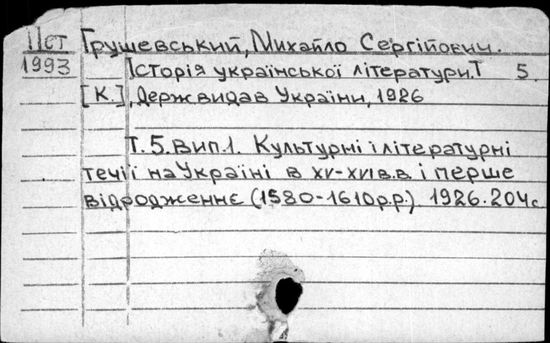 ІІст Грушевський, Михайло Сергійович.
1993 Історія української літератури. Т 5.
[К.], Держвидав України, 1926
Т. 5. вип. 1. Культурні і літературні
течії на Україні в XV-XVI в.в. і перше
відродженнє (1580-1610 р.р.) 1926. 204 с.